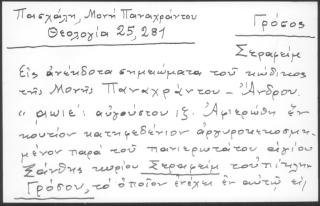 Πασχάλη, Μονή Παναχράντου
Θεολογία 25, 281
Γρόσος
Σεραφείμ
Εἰς ἀνέκδοτα σημειώματα τοῦ κώδικος
τῆς Μονῆς Παναχράντου - Ἄνδρου.
αὐγούστου ιζ. Ἀφιερώθη ἓν
κουτίον κατηφεδένιον ἀργυροκεκοσμη-
μένον παρὰ τοῦ πανιερωτάτου ἁγίου
Ξάνθης κυρίου Σεραφεὶμ τοὐπίκλην
Γρόσου, τὸ ὁποῖον ἐνέχει ἐν αὐτῷ εἰς